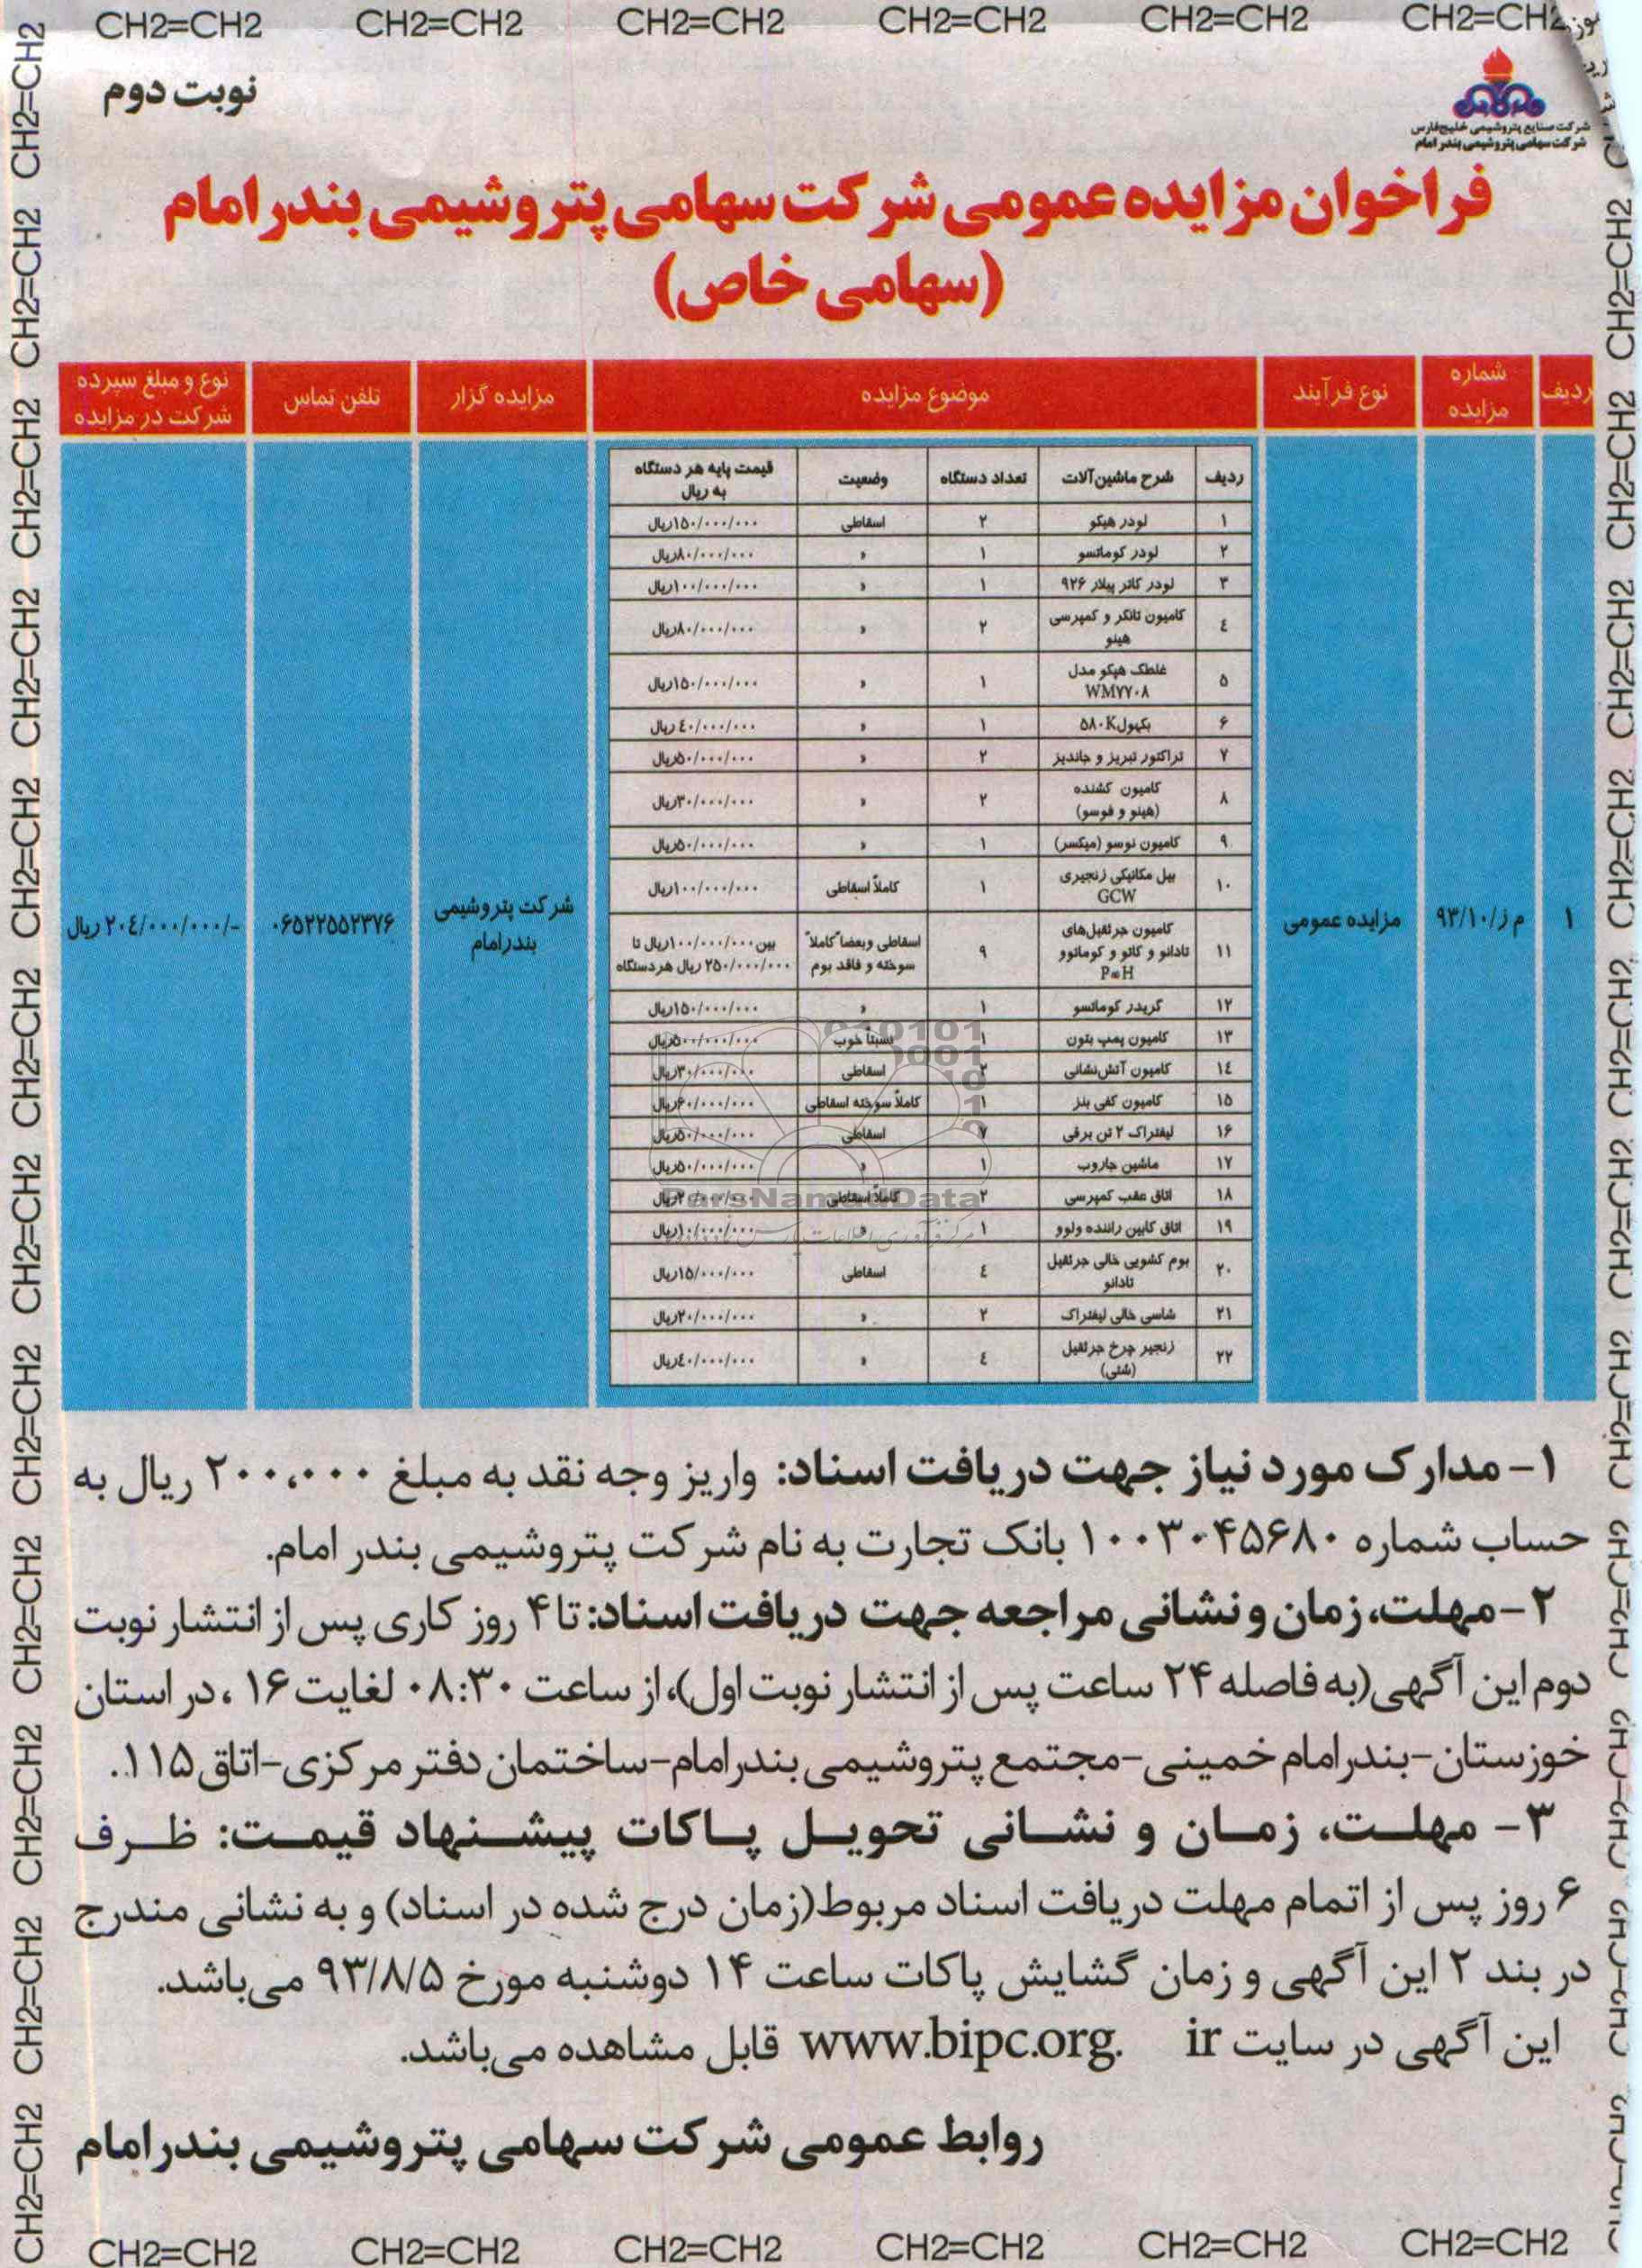 CH2=CH2 CH2=CH2 CH2=CH2 CH2=CH2 CH2=CH2 CH2=CH2
نوبت دوم
شرکت صنایع پتروشیمی خلیج فارس
شرکت سهامی پتروشیمی بندر امام
فراخوان مزایده عمومی شرکت سهامی پتروشیمی بندر امام
(سهامی خاص)
ردیف شماره مزایده نوع فرآیند موضوع مزایده مزایده گزار تلفن تماس نوع و مبلغ سپرده شرکت در مزایده
۱ م ز/۹۳/۱۰ مزایده عمومی شرکت پتروشیمی بندرامام ۰۶۵۲۲۵۵۲۳۷۶ ۲۰٤/۰۰۰/۰۰۰/- ریال
ردیف شرح ماشین‌آلات تعداد دستگاه وضعیت قیمت پایه هر دستگاه به ریال
۱ لودر هپکو ۲ اسقاطی ۱۵۰/۰۰۰/۰۰۰ریال
۲ لودر کوماتسو ۱ » ۸۰/۰۰۰/۰۰۰ریال
۳ لودر کاتر پیلار ۹۲۶ ۱ » ۱۰۰/۰۰۰/۰۰۰ریال
٤ کامیون تانکر و کمپرسی هینو ۲ » ۸۰/۰۰۰/۰۰۰ریال
۵ غلطک هپکو مدل WM۷۷۰۸ ۱ » ۱۵۰/۰۰۰/۰۰۰ریال
۶ بکهول۵۸۰K ۱ » ٤۰/۰۰۰/۰۰۰ ریال
۷ تراکتور تبریز و جاندیر ۲ » ۵۰/۰۰۰/۰۰۰ریال
۸ کامیون کشنده (هینو و فوسو) ۲ » ۳۰/۰۰۰/۰۰۰ریال
۹ کامیون نوسو (میکسر) ۱ » ۵۰/۰۰۰/۰۰۰ریال
۱۰ بیل مکانیکی زنجیری GCW ۱ کاملاً اسقاطی ۱۰۰/۰۰۰/۰۰۰ریال
۱۱ کامیون جرثقیل‌های تادانو و کاتو و کوماتوو P∞H ۹ اسقاطی وبعضاً کاملاً سوخته و فاقد بوم بین۱۰۰/۰۰۰/۰۰۰ریال تا ۲۵۰/۰۰۰/۰۰۰ ریال هردستگاه
۱۲ گریدر کوماتسو ۱ » ۱۵۰/۰۰۰/۰۰۰ریال
۱۳ کامیون پمپ بتون ۱ نسبتاً خوب ۵۰۰/۰۰۰/۰۰۰ریال
۱٤ کامیون آتش‌نشانی ۲ اسقاطی ۳۰/۰۰۰/۰۰۰ریال
۱۵ کامیون کفی بنز ۱ کاملاً سوخته اسقاطی ۶۰/۰۰۰/۰۰۰ریال
۱۶ لیفتراک ۲ تن برقی ۷ اسقاطی ۵۰/۰۰۰/۰۰۰ریال
۱۷ ماشین جاروب ۱ » ۵۰/۰۰۰/۰۰۰ریال
۱۸ اتاق عقب کمپرسی ۲ کاملاً اسقاطی ۲۰/۰۰۰/۰۰۰ریال
۱۹ اتاق کابین راننده ولوو ۱ » ۱۰/۰۰۰/۰۰۰ریال
۲۰ بوم کشویی خالی جرثقیل تادانو ٤ اسقاطی ۱۵/۰۰۰/۰۰۰ریال
۲۱ شاسی خالی لیفتراک ۲ » ۲۰/۰۰۰/۰۰۰ریال
۲۲ زنجیر چرخ جرثقیل (شنی) ٤ » ٤۰/۰۰۰/۰۰۰ریال
ParsNamadData
۱- مدارک مورد نیاز جهت دریافت اسناد: واریز وجه نقد به مبلغ ۲۰۰،۰۰۰ ریال به
حساب شماره ۱۰۰۳۰۴۵۶۸۰ بانک تجارت به نام شرکت پتروشیمی بندر امام.
۲-مهلت، زمان و نشانی مراجعه جهت دریافت اسناد: تا ۴ روز کاری پس از انتشار نوبت
دوم این آگهی(به فاصله ۲۴ ساعت پس از انتشار نوبت اول)، از ساعت ۰۸:۳۰ لغایت ۱۶ ، در استان
خوزستان-بندر امام خمینی-مجتمع پتروشیمی بندر امام-ساختمان دفتر مرکزی-اتاق ۱۱۵.
۳- مهلت، زمان و نشانی تحویل پاکات پیشنهاد قیمت: ظرف
۶ روز پس از اتمام مهلت دریافت اسناد مربوط(زمان درج شده در اسناد) و به نشانی مندرج
در بند ۲ این آگهی و زمان گشایش پاکات ساعت ۱۴ دوشنبه مورخ ۹۳/۸/۵ می‌باشد.
این آگهی در سایت www.bipc.org. ir قابل مشاهده می‌باشد.
روابط عمومی شرکت سهامی پتروشیمی بندر امام
CH2=CH2 CH2=CH2 CH2=CH2 CH2=CH2 CH2=CH2 CH2=CH2